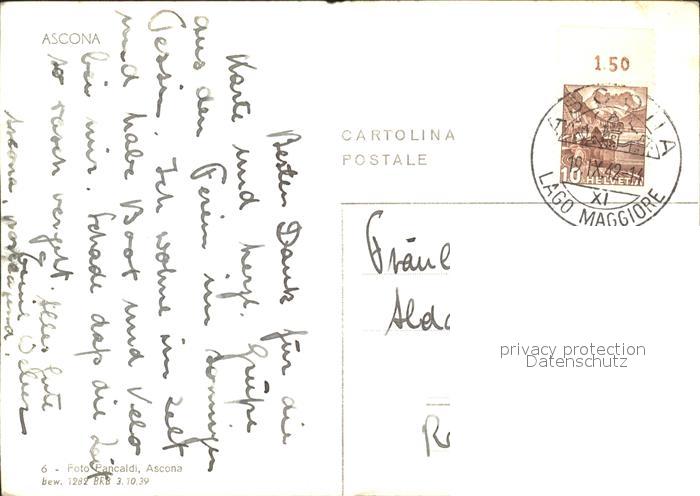 ASCONA
Besten Dank für die
Karte und herzl. Grüße
aus den Ferien im sonnigen
Tessin. Ich wohne im Zelt
und habe Boot und Velo
bei mir. Schade dass die Zeit
so rasch vergeht. Alles Gute
Weber
Ascona, posta
6 - Foto Pancaldi, Ascona
Bew. 1282 BRB 3.10.39
CARTOLINA
POSTALE
1.50
10 HELVETIA
18.IX.42-14
XI
LAGO MAGGIORE
Fräul
Alda
privacy protection
Datenschutz